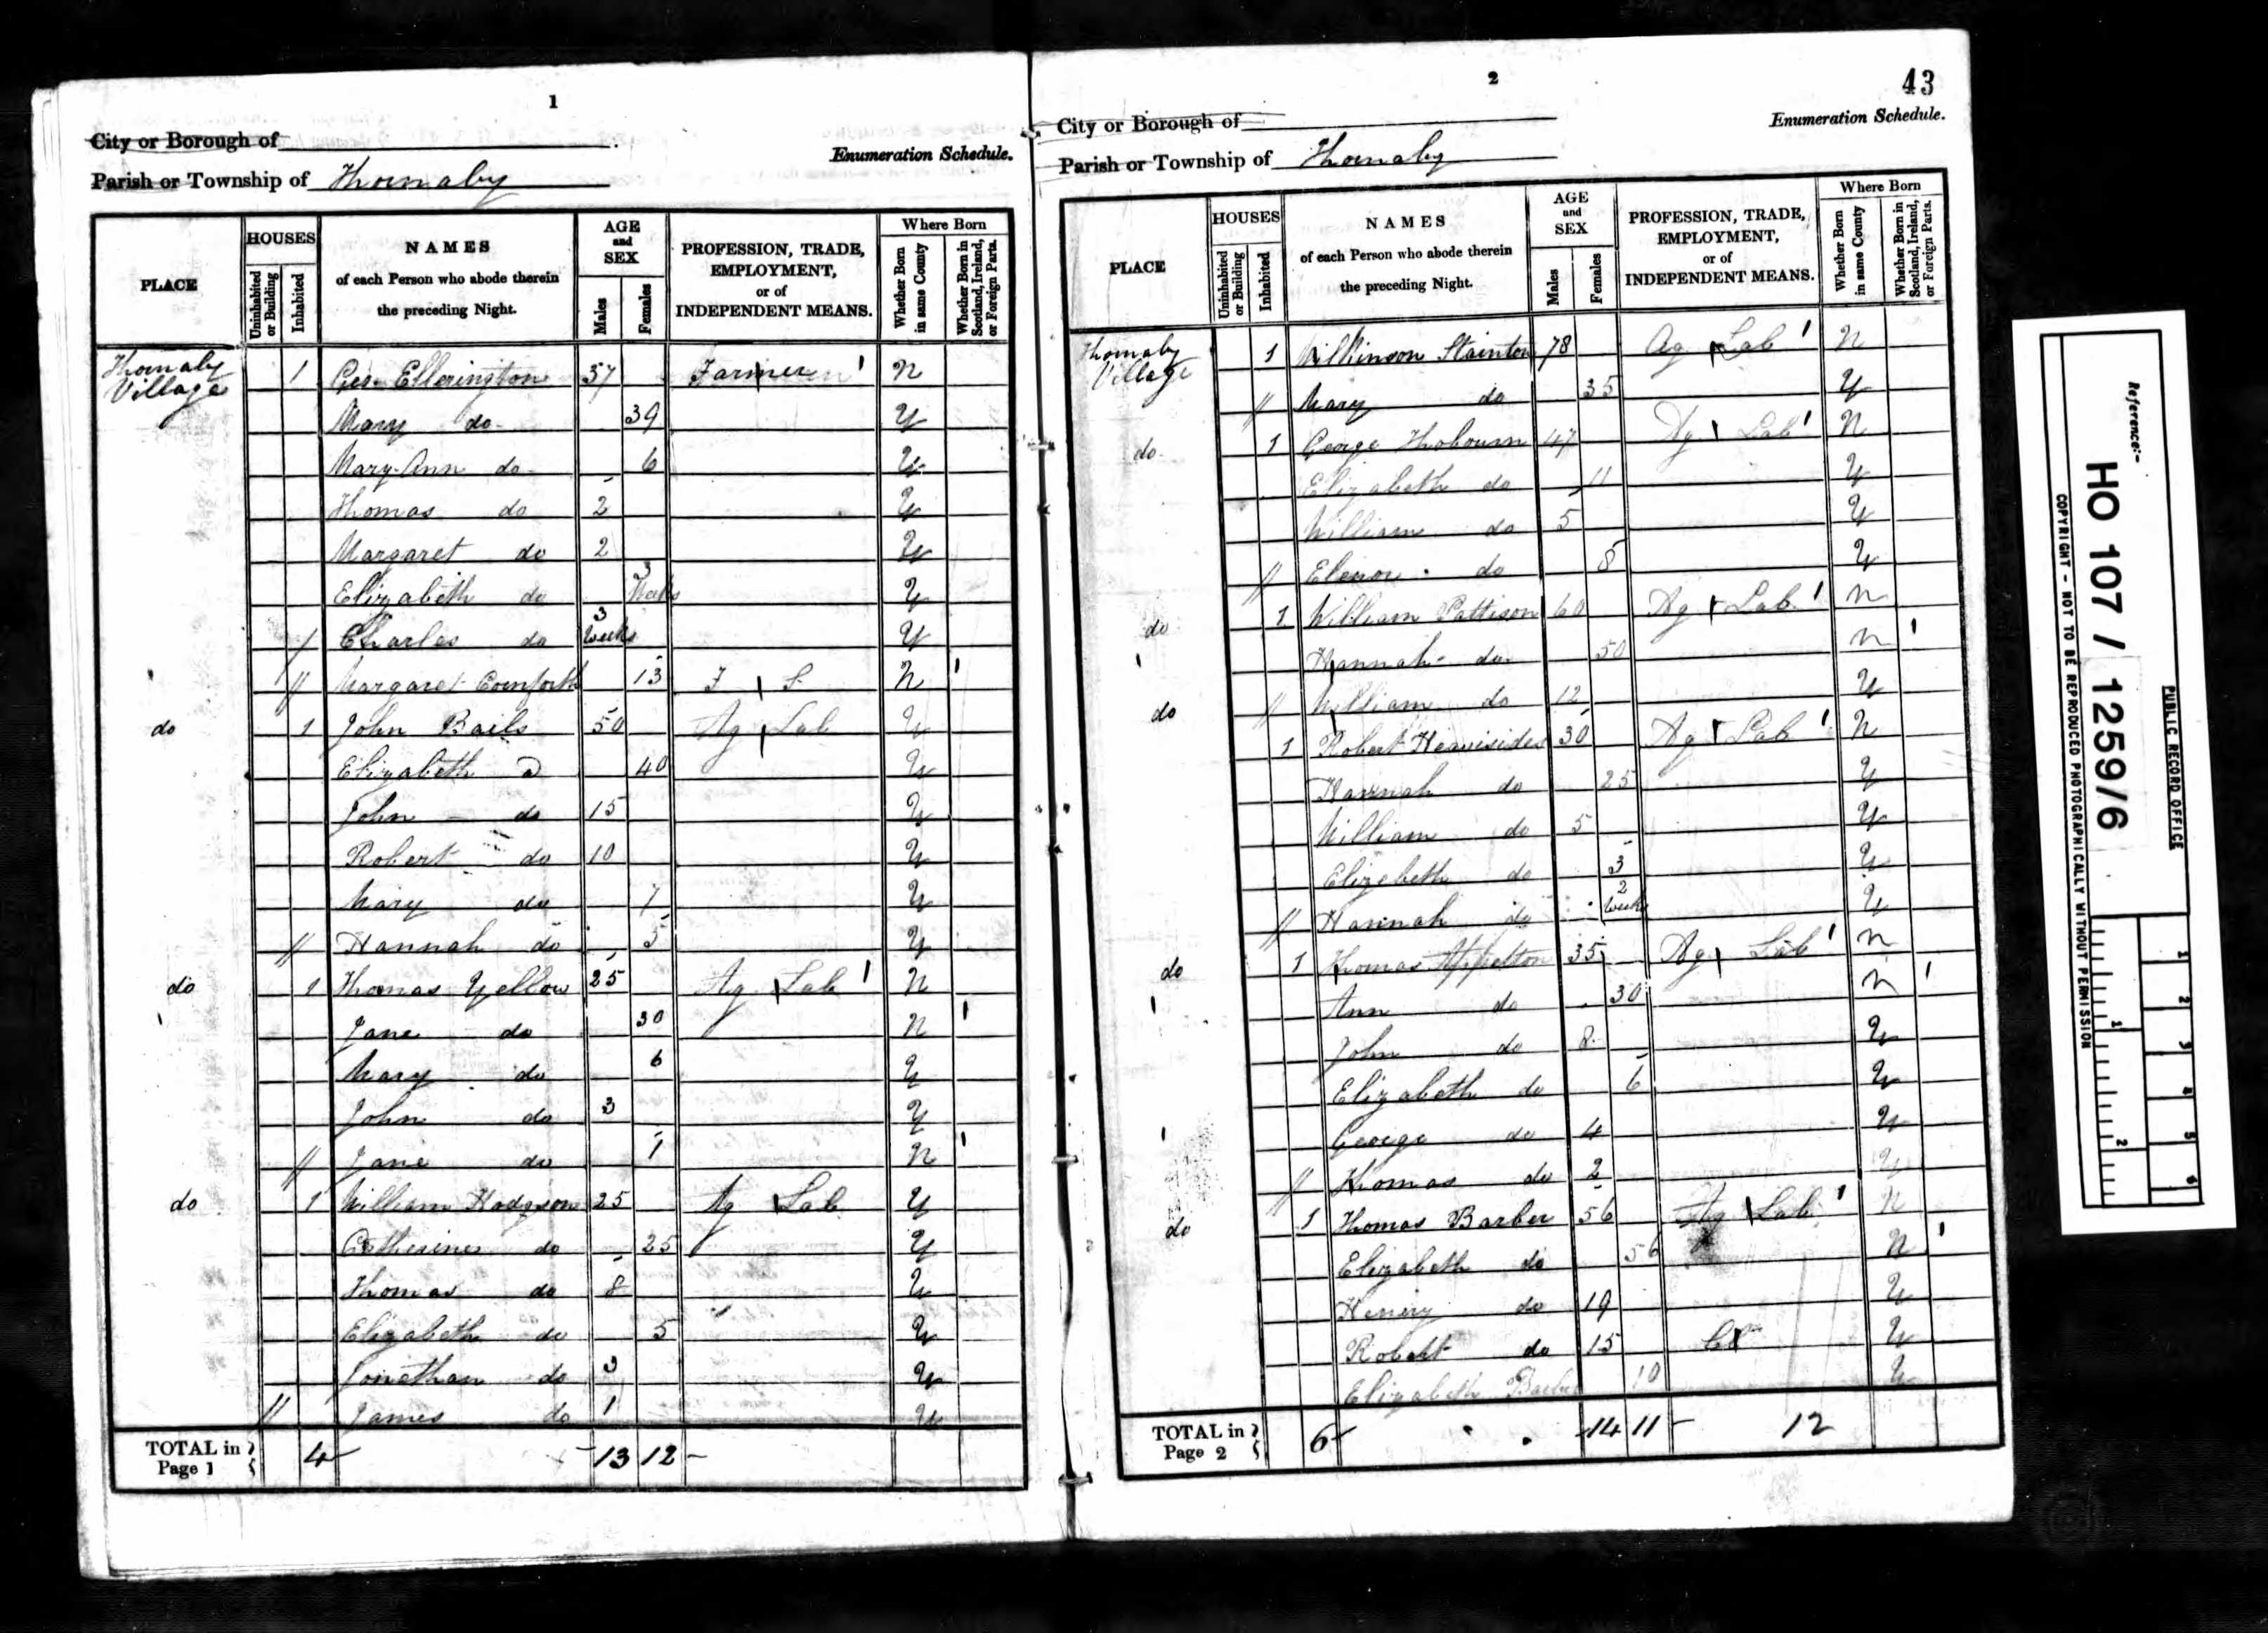 1
City or Borough of
Enumeration Schedule.
Parish or Township of Thornaby
PLACE
HOUSES
Uninhabited or Building
Inhabited
NAMES
of each Person who abode therein
the preceding Night.
AGE
and
SEX
Males
Females
PROFESSION, TRADE,
EMPLOYMENT,
or of
INDEPENDENT MEANS.
Where Born
Whether Born in same County
Whether Born in Scotland, Ireland, or Foreign Parts.
Thornaby Village 1 Geo. Ellerington 37 Farmer N
Mary do 39 Y
Mary Ann do 6 Y
Thomas do 2 Y
Margaret do 2 Y
Elizabeth do 3 Weeks Y
Charles do 3 Weeks Y
Margaret Cornforth 13 F S N
do 1 John Bails 50 Ag Lab Y
Elizabeth do 40 Y
John do 15 Y
Robert do 10 Y
Mary do 7 Y
Hannah do 5 Y
do 1 Thomas Yellow 25 Ag Lab N
Jane do 30 N
Mary do 6 Y
John do 3 Y
Jane do 1 N
do 1 William Hodgson 25 Ag Lab Y
Catherine do 25 Y
Thomas do 8 Y
Elizabeth do 5 Y
Jonathan do 3 Y
James do 1 Y
TOTAL in Page 1 4 13 12
2
43
City or Borough of
Enumeration Schedule.
Parish or Township of Thornaby
PLACE
HOUSES
Uninhabited or Building
Inhabited
NAMES
of each Person who abode therein
the preceding Night.
AGE
and
SEX
Males
Females
PROFESSION, TRADE,
EMPLOYMENT,
or of
INDEPENDENT MEANS.
Where Born
Whether Born in same County
Whether Born in Scotland, Ireland, or Foreign Parts.
Thornaby Village 1 Wilkinson Stainton 78 Ag Lab N
Mary do 35 Y
do 1 George Thobourn 47 Ag Lab N
Elizabeth do 11 Y
William do 5 Y
Elenor do 8 Y
do 1 William Pattison 60 Ag Lab N
Hannah do 50 N
William do 12 Y
do 1 Robert Heavisides 30 Ag Lab N
Hannah do 25 Y
William do 5 Y
Elizebeth do 3 Y
Hannah do 2 Weeks Y
do 1 Thomas Appelton 35 Ag Lab N
Ann do 30 N
John do 8 Y
Elizabeth do 6 Y
George do 4 Y
Thomas do 2 Y
do 1 Thomas Barber 56 Ag Lab N
Elizabeth do 56 N
Henry do 19 Y
Robert do 15 Y
Elizabeth Barber 10 Y
TOTAL in Page 2 6 14 11 12
Reference:-
HO 107 / 1259/6
PUBLIC RECORD OFFICE
COPYRIGHT - NOT TO BE REPRODUCED PHOTOGRAPHICALLY WITHOUT PERMISSION
1
2
3
4
5
6
1
2